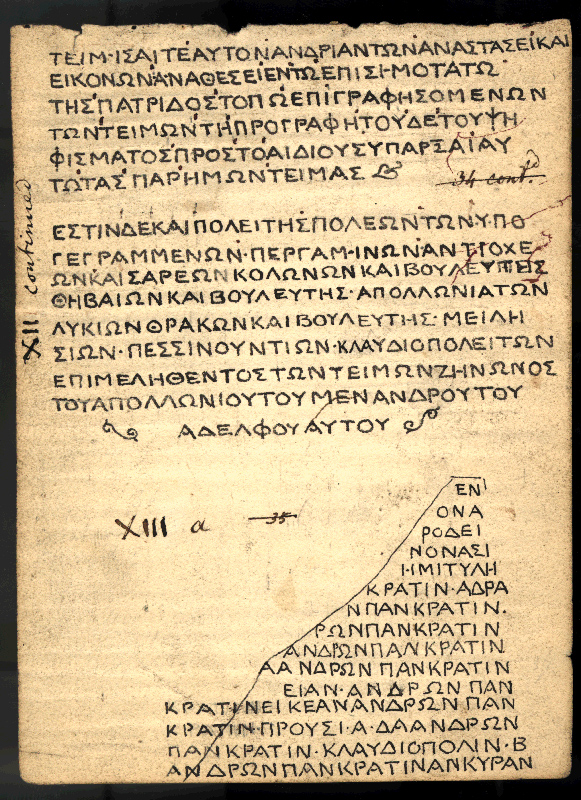 ΤΕΙΜ·ΙΣΑΙΤΕΑΥΤΟΝΑΝΔΡΙΑΝΤΩΝΑΝΑΣΤΑΣΕΙΚΑΙ
ΕΙΚΟΝΩΝΑΝΑΘΕΣΕΙΕΝΤΩΕΠΙΣΙ·ΜΟΤΑΤΩ
ΤΗΣΠΑΤΡΙΔΟΣΤΟΠΩΕΠΙΓΡΑΦΗΣΟΜΕΝΩΝ
ΤΩΝΤΕΙΜΩΝΤΗΠΡΟΓΡΑΦΗΤΟΥΔΕΤΟΥΨΗ
ΦΙΣΜΑΤΟΣΠΡΟΣΤΟΑΙΔΙΟΥΣΥΠΑΡΣΑΙΑΥ
ΤΩΤΑΣΠΑΡΗΜΩΝΤΕΙΜΑΣ
34 contd.
XII continued
ΕΣΤΙΝΔΕΚΑΙΠΟΛΕΙΤΗΣΠΟΛΕΩΝΤΩΝΥΠΟ
ΓΕΓΡΑΜΜΕΝΩΝ·ΠΕΡΓΑΜ·ΙΝΩΝΑΝΤΙΟΧΕ
ΩΝΚΑΙΣΑΡΕΩΝΚΟΛΩΝΩΝΚΑΙΒΟΥΛΕΥΤΗΣ
ΘΗΒΑΙΩΝΚΑΙΒΟΥΛΕΥΤΗΣ·ΑΠΟΛΛΩΝΙΑΤΩΝ
ΛΥΚΙΩΝΘΡΑΚΩΝΚΑΙΒΟΥΛΕΥΤΗΣ·ΜΕΙΛΗ
ΣΙΩΝ·ΠΕΣΣΙΝΟΥΝΤΙΩΝ·ΚΛΑΥΔΙΟΠΟΛΕΙΤΩΝ
ΕΠΙΜΕΛΗΘΕΝΤΟΣΤΩΝΤΕΙΜΩΝΖΗΝΩΝΟΣ
ΤΟΥΑΠΟΛΛΩΝΙΟΥΤΟΥΜΕΝΑΝΔΡΟΥΤΟΥ
ΑΔΕΛΦΟΥΑΥΤΟΥ
XIII a
35
ΕΝ
ΟΝΑ
ΡΟΔΕΙ
ΝΟΝΑΣΙ
Ι·ΙΜΙΤΥΛΗ
ΚΡΑΤΙΝ·ΑΔΡΑ
ΝΠΑΝΚΡΑΤΙΝ.
ΡΩΝΠΑΝΚΡΑΤΙΝ
ΑΝΔΡΩΝΠΑΝΚΡΑΤΙΝ
ΑΑΝΔΡΩΝΠΑΝΚΡΑΤΙΝ
ΕΙΑΝ·ΑΝΔΡΩΝΠΑΝ
ΚΡΑΤΙΝΕΙΚΕΑΝΑΝΔΡΩΝΠΑΝ
ΚΡΑΤΙΝ·ΠΡΟΥΣΙ·Α·ΔΑΑΝΔΡΩΝ
ΠΑΝΚΡΑΤΙΝ·ΚΛΑΥΔΙΟΠΟΛΙΝ·Β
ΑΝΔΡΩΝΠΑΝΚΡΑΤΙΝΑΝΚΥΡΑΝ